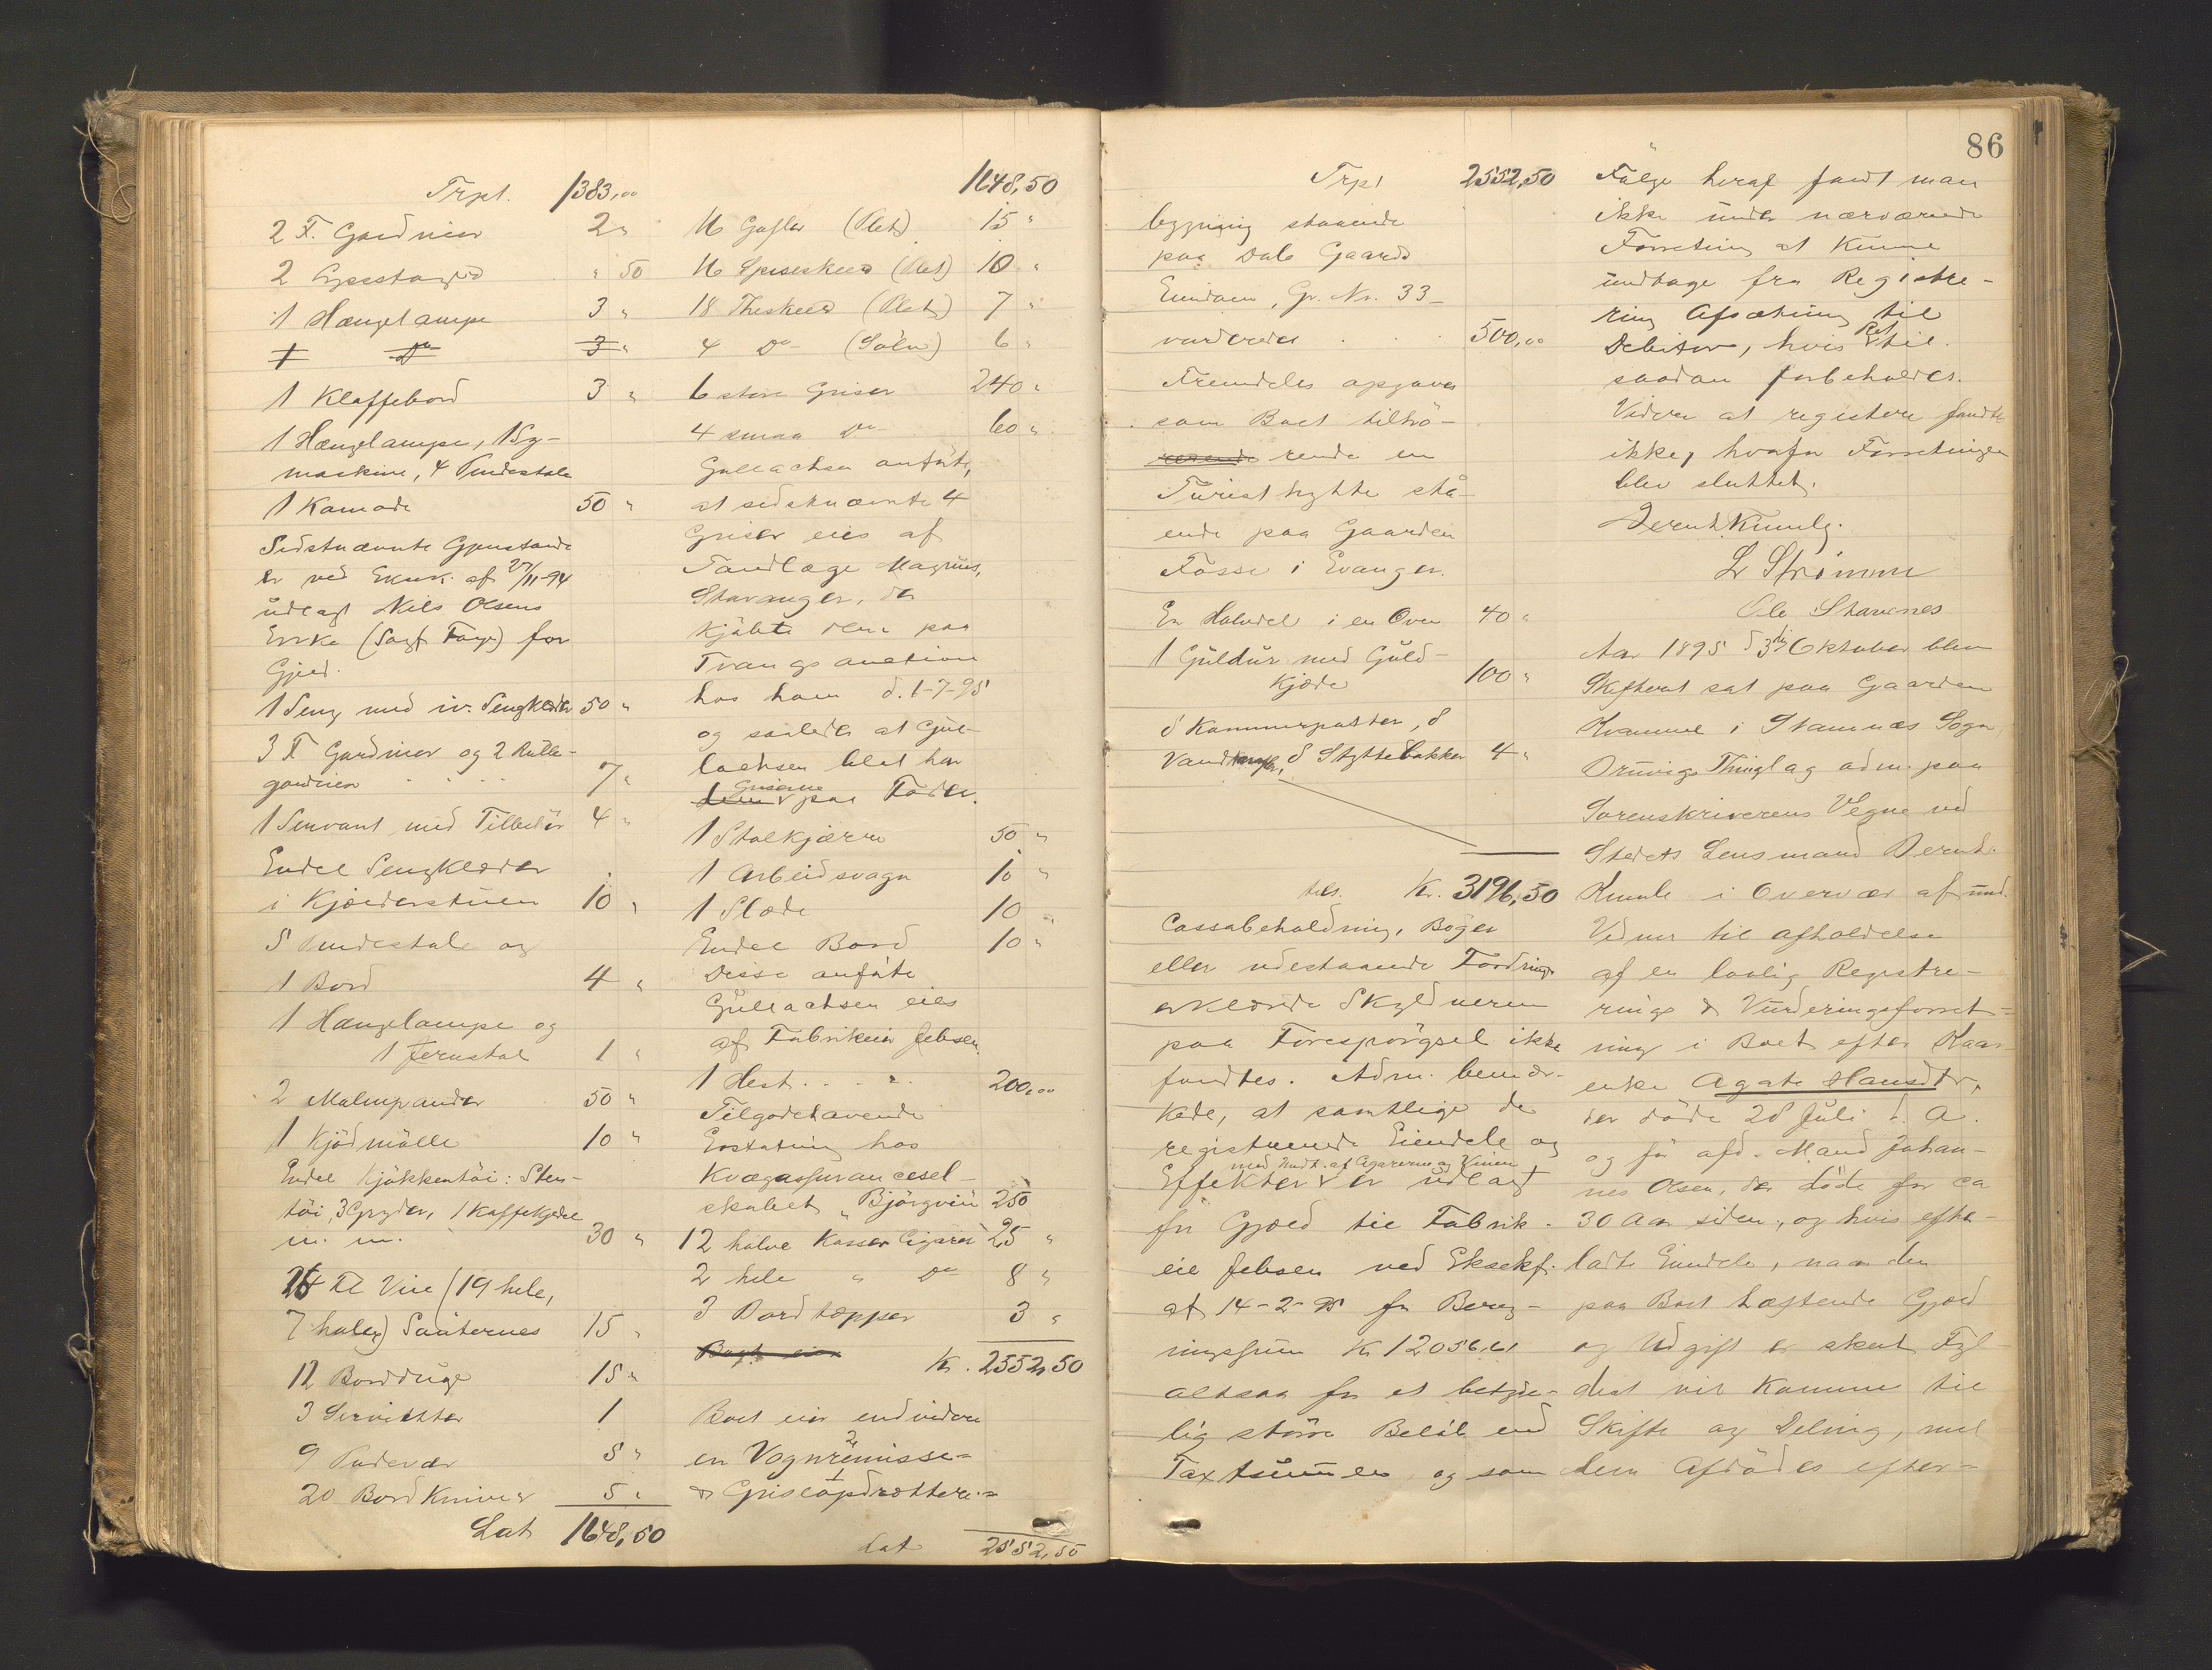 Trpt. 1383,00
2 F. Gardiner 2 "
2 " 50
1 Hængelampe 3 "
1 Do 3 "
1 Klaffebord 3 "
1 Hængelampe, 1 Sy-
maskine, 4 Pindestole
1 Komode 50 "
Sidstnævnte Gjenstande
er ved Eksek. af 27/11-94
udlagt Niels Olsens
Enke (Sagf. Farge) for
Gjæld.
1 Seng med iv. Sengklæder 50 "
3 F Gardiner og 2 Rulle-
gardiner 7 "
1 Servant med Tilbehör 4 "
Endel Sengklæder
i Kjælderstuen 10 "
5 Pindestole og
1 Bord 4 "
1 Hængelampe og
1 Jernstol 1 "
2 Malmpander 50 "
1 Kjödmölle 10 "
Endel Kjökkentöi: Sten-
töi, 3 Gryder, 1 Kaffekjedel
m. m. 30 "
Fl Vin (19 hele,
7 halve) Sauternes 15 "
12 Bordduge 15 "
3 Servietter 1
9 Pudevar 5 "
20 Bordkniver 5 "
Lat 1648,50
1648,50
16 Gafler (Plet) 15 "
16 Spiseskeer (Plet) 10 "
18 Theskeer (Plet) 7 "
4 Do (Sölv) 6 "
6 store Griser 240 "
4 smaa Do 60 "
Gullachsen anförte,
at sidstnævnte 4
Griser eies af
Tandlæge Magnus,
Stavanger, der
kjöbte dem paa
Tvangsauction
hos ham d. 1-7-95
og saaledes at Gul-
lachsen blot har
dem Griserne paa Foder.
1 Stolkjærre 50 "
1 Arbeidsvogn 10 "
1 Slæde 10 "
Endel Bord 10 "
Disse anförte
Gullachsen eies
af Fabrikeier Jebsen.
1 Hest . . . . 200,00
Tilgodehavende
Erstatning hos
Kvægassurancesel-
skabet "Björgvin" 250
12 halve Kasser Cigarer 25 "
2 hele " Do 8 "
3 Bordtæpper 3 "
Kr. 2552,50
Boet eier endvidere
en Vognremisse- 2
& Griseopdrætteri- 1
Lat 2552,50
86
Trpt 2552,50
bygning staaende
paa Dale Gaards
Eiendom, Gr. Nr. 33-
vurderes . . . 500,00
Fremdeles opgaves
som Boet tilhö-
rende en
Turisthytte stå-
ende paa Gaarden
Fosse i Evanger.
En Halvdel i en Ovn 40 "
1 Guldur med Guld-
kjæde 100 "
8 Kammerpotter, 8
Vandkarafler, 8 Støttebakker 4 "
tils. Kr. 3196,50
Cassabeholdning, Böger
eller udestaaende Fordringer
erklærede Skyldneren
paa Forespörgsel ikke
fandtes. Adm. bemær-
kede, at samtlige de
registrerede Eiendele og
med Undt. af Cigarerne og Vinen
Effekter er udlagt
for Gjæld til Fabrik-
eie Jebsen ved Eksekf.
af 14-2-95 for Bereg-
ningssum Kr 12056,61
altsaa for et betyde-
lig större Belöb end
Taxtsummen, og som
Fölge heraf fandt man
ikke under nærværende
Forretning at kunne
undtage fra Registre-
ring Afsætning til
Debitor, hvis Ret til
saadan forbeholdes.
Videre at registere fandtes
ikke, hvorfor Forretningen
blev sluttet.
Bernt Kumle.
L Strömme
Ole Stavenes
Aar 1895 d 3die Oktober blev
Skifteret sat paa Gaarden
Kvamme i Stamnæs Sogn,
Bruvigs Thinglag adm. paa
Sorenskriverens Vegne ved
Stedets Lensmand Bernt
Kumle i Overvær af und.
Vidner til afholdelse
af en lovlig Registre-
rings & Vurderingsforret-
ning i Boet efter Kaar-
enke Agate Hansdtr,
der döde 28 Juli d. A.
og för afd. Mand Johan-
nes Olsen, der döde for ca
30 Aar siden, og hvis efter-
ladte Eiendele, naar den
paa Boet hæftende Gjæld
og Udgift er skeet Fyl-
dest vil komme til
Skifte og Deling, mel-
lem Afdödes efter-